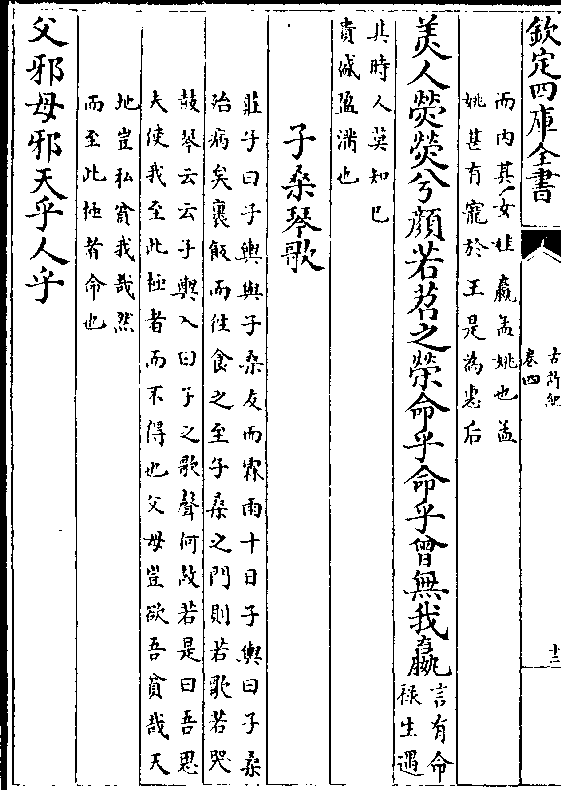 欽定四庫全書
古詩紀
卷四
十三
而内其女娃嬴孟姚也孟
姚甚有寵於王是為惠后
美人熒熒兮顔若苕之榮命乎命乎曾無我嬴
言有命
禄生遇
其時人莫知已
貴盛盈滿也
子桑琴歌
莊子曰子輿與子桑友而霖雨十日子輿曰子桑
殆病矣裹飯而往食之至子桑之門則若歌若哭
鼓琴云云子輿入曰子之歌聲何故若是曰吾思
夫使我至此極者而不得也父母豈欲吾貧哉天
地豈私貧我哉然
而至此極者命也
父邪母邪天乎人乎